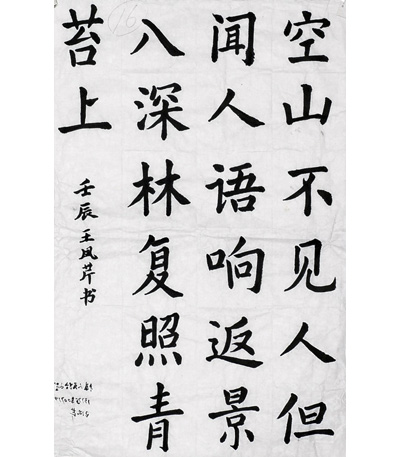 16
空山不见人但
闻人语响返景
八深林复照青
苔上
壬辰王凤芹书